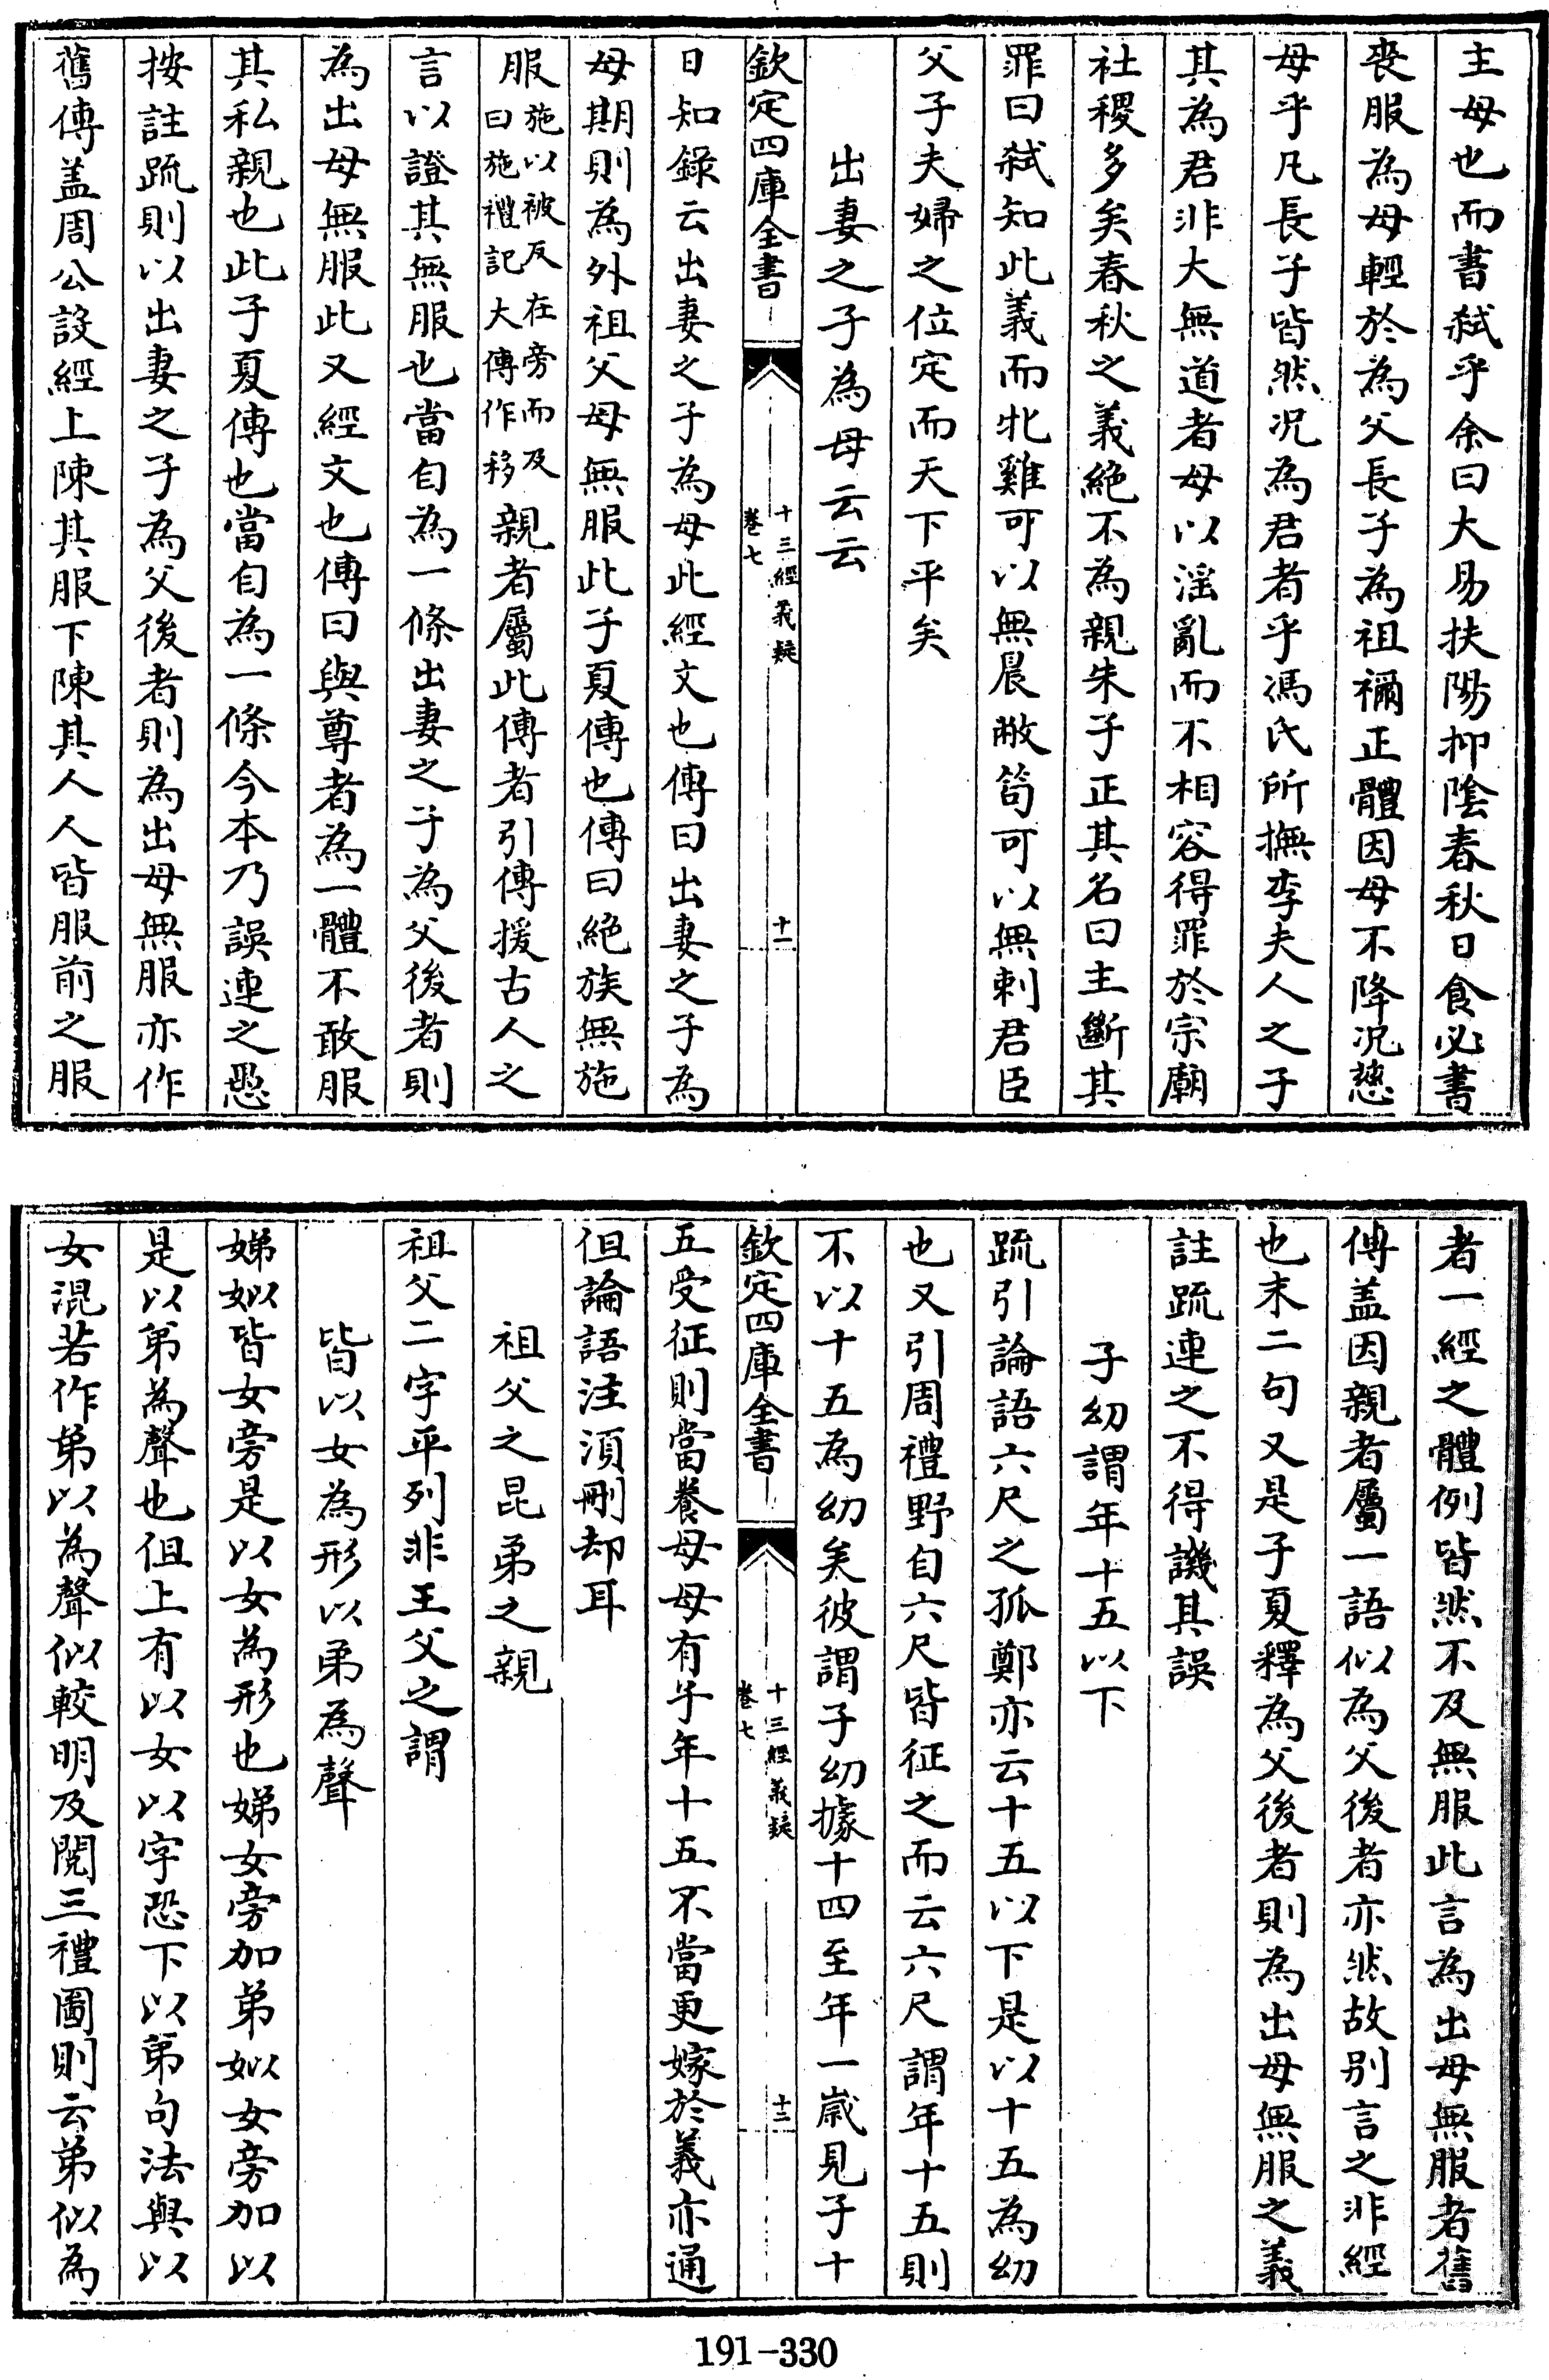 主母也而書弑乎余曰大易扶陽抑陰春秋日食必書
喪服為母輕於為父長子為祖禰正體因母不降况慈
母乎凡長子皆然况為君者乎馮氏所撫李夫人之子
其為君非大無道者母以淫亂而不相容得罪於宗廟
社稷多矣春秋之義絶不為親朱子正其名曰主斷其
罪曰弑知此義而牝雞可以無晨敝笱可以無刺君臣
父子夫婦之位定而天下平矣
出妻之子為母云云
欽定四庫全書
十三經義疑
卷七
十一
日知錄云出妻之子為母此經文也傳曰出妻之子為
母期則為外祖父母無服此子夏傳也傳曰絶族無施
服施以被反在旁而及曰施禮記大傳作移親者屬此傳者引傳援古人之
言以證其無服也當自為一條出妻之子為父後者則
為出母無服此又經文也傳曰與尊者為一體不敢服
其私親也此子夏傳也當自為一條今本乃誤連之愚
按註疏則以出妻之子為父後者則為出母無服亦作
舊傳盖周公設經上陳其服下陳其人人皆服前之服
者一經之體例皆然不及無服此言為出母無服者舊
傳盖因親者屬一語似為父後者亦然故别言之非經
也末二句又是子夏釋為父後者則為出母無服之義
註疏連之不得譏其誤
子幼謂年十五以下
疏引論語六尺之孤鄭亦云十五以下是以十五為幼
也又引周禮野自六尺皆征之而云六尺謂年十五則
不以十五為幼矣彼謂子幼據十四至年一歲見子十
欽定四庫全書
十三經義疑
卷七
十二
五受征則當養母母有子年十五不當更嫁於義亦通
但論語注須刪却耳
祖父之昆弟之親
祖父二字平列非王父之謂
皆以女為形以弟為聲
娣姒皆女旁是以女為形也娣女旁加弟姒女旁加以
是以弟為聲也但上有以女以字恐下以弟句法與以
女混若作弟以為聲似較明及閱三禮圖則云弟似為
191-330